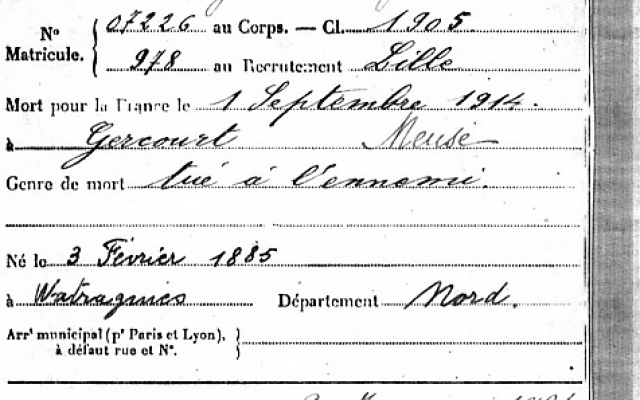 Nº Matricule. { 07226 au Corps. — Cl. 1905.
978 au Recrutement Lille
Mort pour la France le 1 Septembre 1914.
à Gercourt Meuse
Genre de mort tué à l'ennemi.
Né le 3 Février 1885
à Wattignies Département Nord.
Arrᵗ municipal (pʳ Paris et Lyon), }
à défaut rue et Nº. }